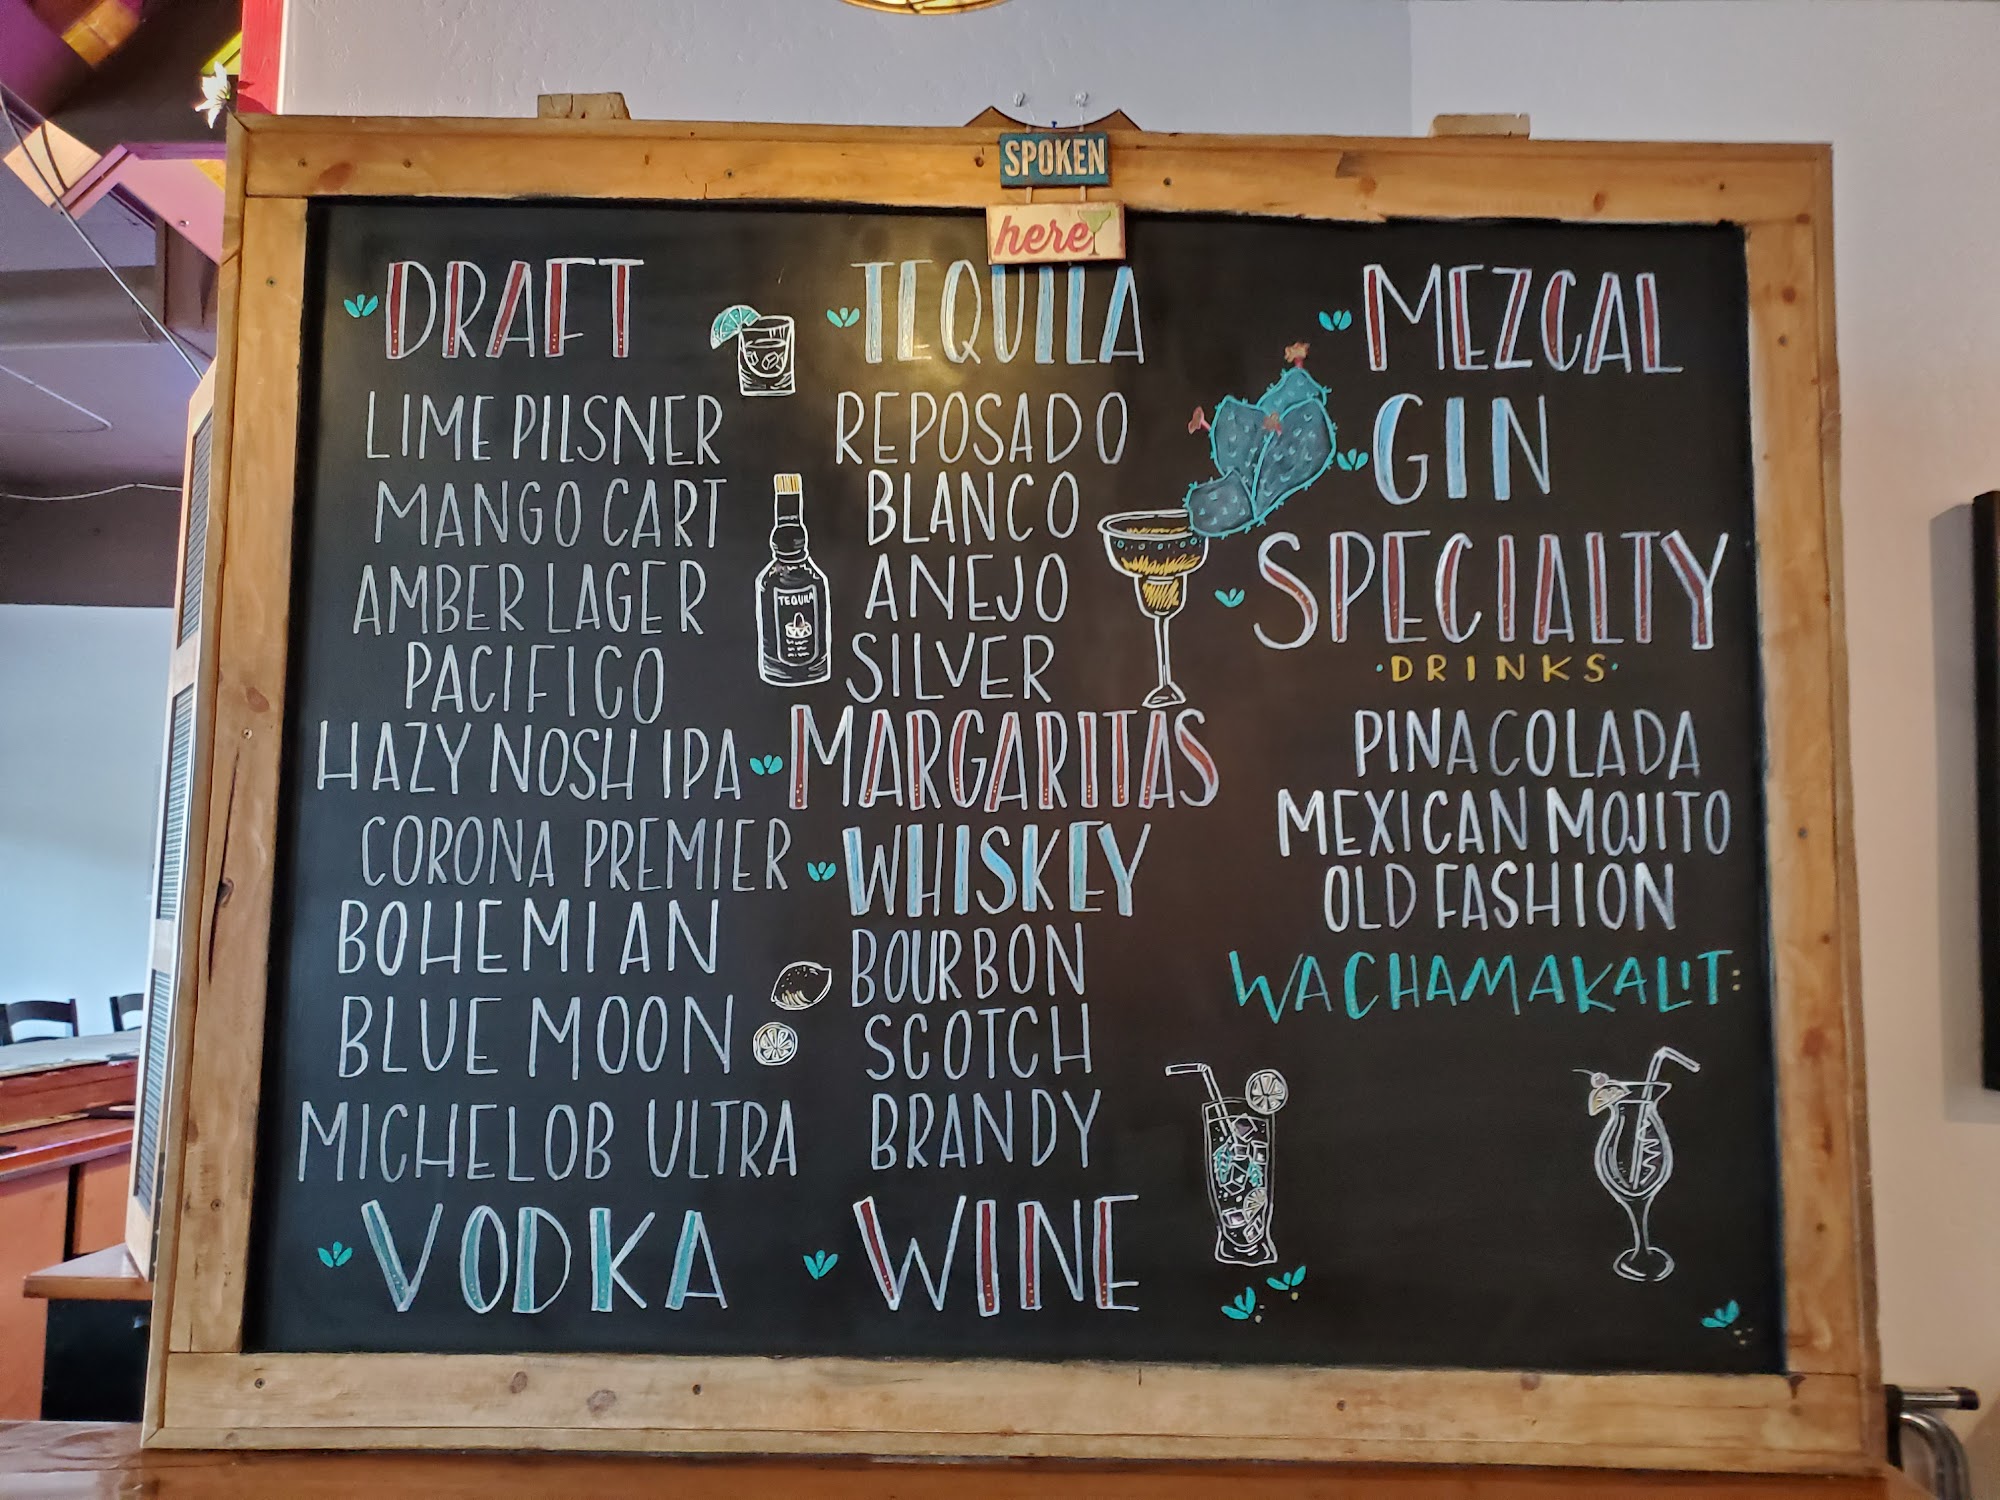 SPOKEN
here
DRAFT
LIME PILSNER
MANGO CART
AMBER LAGER
PACIFICO
HAZY NOSH IPA
CORONA PREMIER
BOHEMIAN
BLUE MOON
MICHELOB ULTRA
VODKA
TEQUILA
REPOSADO
BLANCO
ANEJO
SILVER
TEQUILA
MARGARITAS
WHISKEY
BOURBON
SCOTCH
BRANDY
WINE
MEZCAL
GIN
SPECIALTY
·DRINKS·
PINA COLADA
MEXICAN MOJITO
OLD FASHION
WACHAMAKALIT: